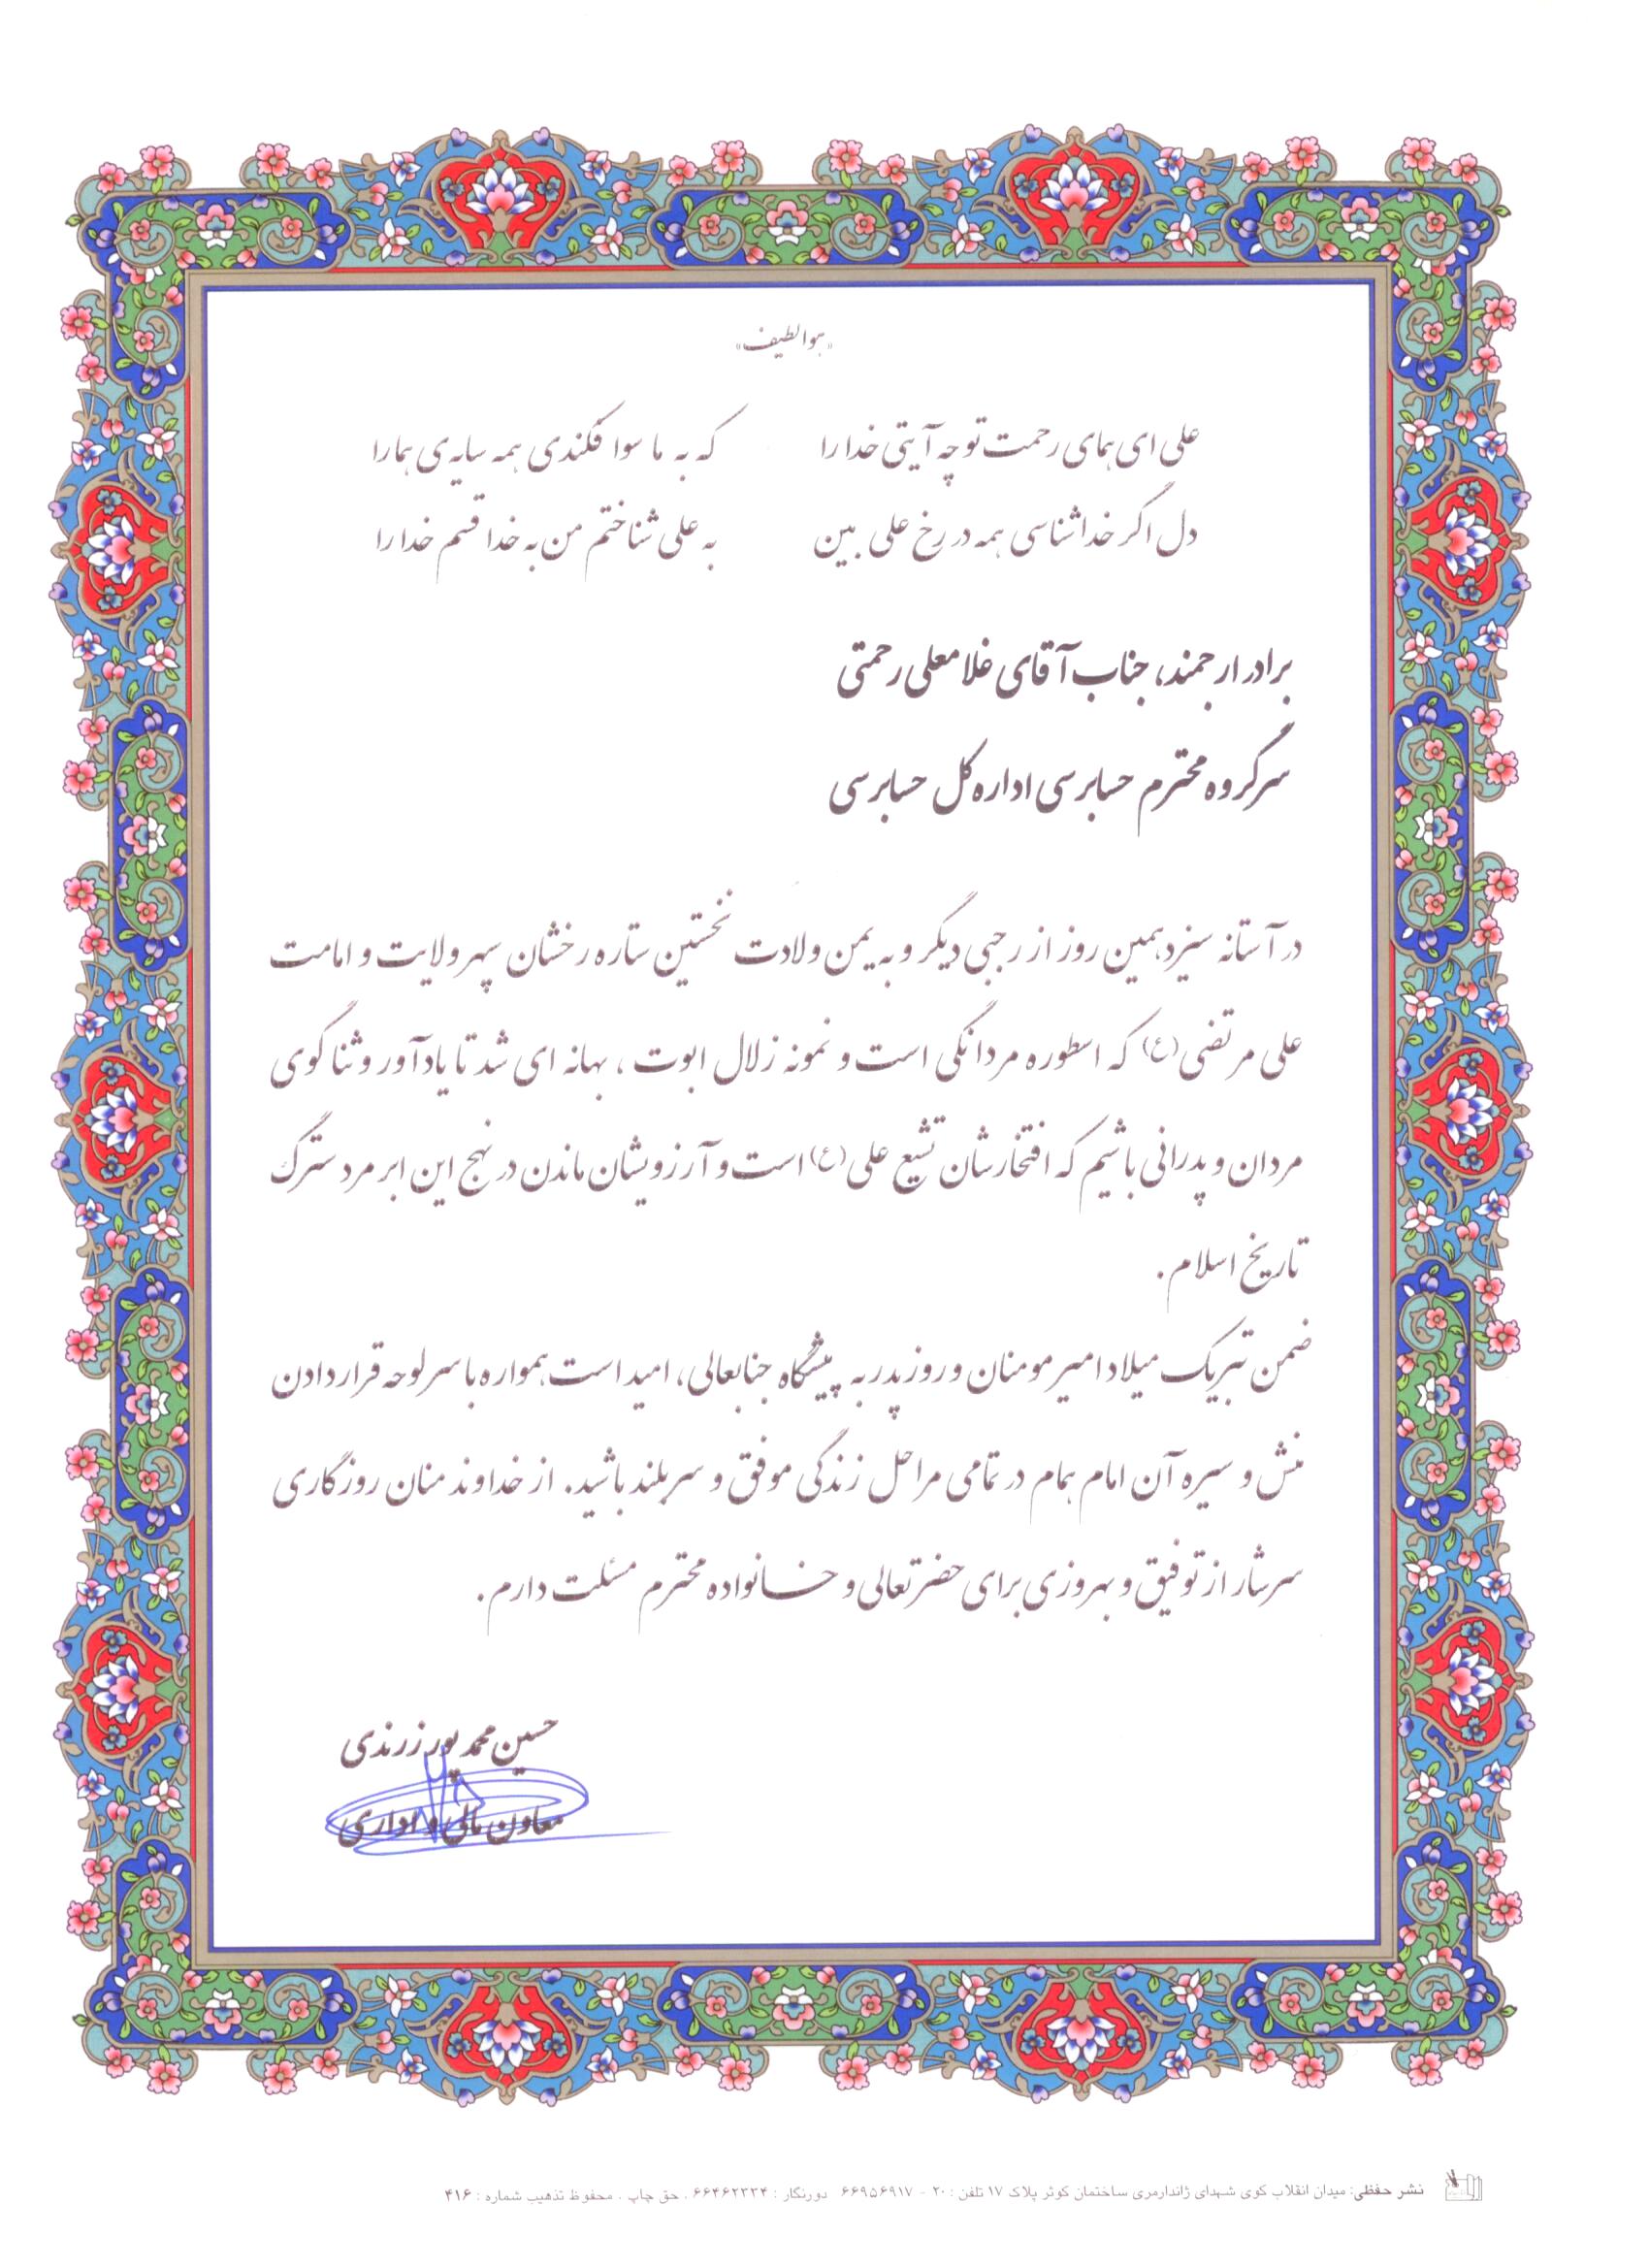 «هوالطیف»
علی ای همای رحمت تو چه آیتی خدا را که به ما سوا فکندی همه سایه‌ی هما را
دل اگر خداشناسی همه در رخ علی بین به علی شناختم من به خدا قسم خدا را
برادر ارجمند، جناب آقای غلامعلی رحمتی
سرگروه محترم حسابرسی اداره کل حسابرسی
در آستانه سیزدهمین روز از رجبی دیگر و به یمن ولادت نخستین ستاره رخشان سپهر ولایت و امامت
علی مرتضی (ع) که اسطوره مردانگی است و نمونه زلال ابوت ، بهانه ای شد تا یادآور و ثناگوی
مردان و پدرانی باشیم که افتخارشان تشیع علی (ع) است و آرزویشان ماندن در نهج این ابر مرد سترگ
تاریخ اسلام .
ضمن تبریک میلاد امیر مومنان و روز پدر به پیشگاه جنابعالی، امید است همواره با سرلوحه قرار دادن
منش و سیره آن امام همام در تمامی مراحل زندگی موفق و سربلند باشید. از خداوند منان روزگاری
سرشار از توفیق و بهروزی برای حضرتعالی و خانواده محترم مسئلت دارم .
حسین محمد پور زرندی
معاون مالی و اداری
نشر حفظی: میدان انقلاب کوی شهدای ژاندارمری ساختمان کوثر پلاک ۱۷ تلفن : ۲۰ - ۶۶۹۵۶۹۱۷ دورنگار : ۶۶۴۶۲۳۳۴ . حق چاپ . محفوظ تذهیب شماره : ۴۱۶